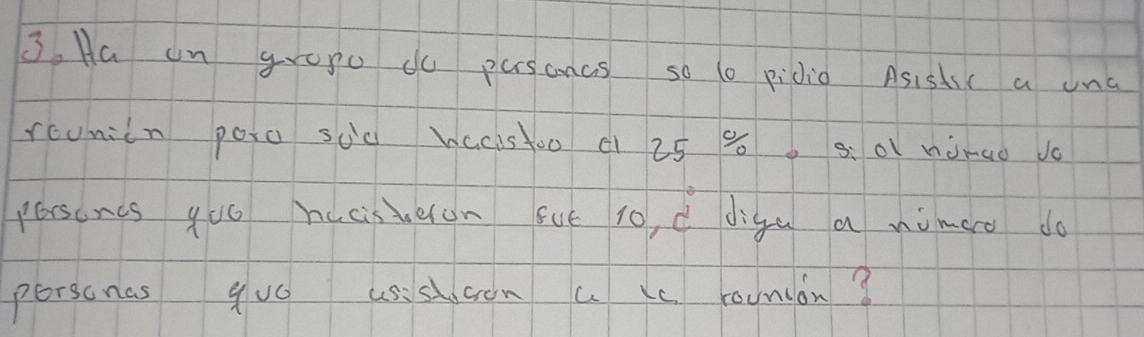 3. Ha un grupo de personas se le pidio Asistir a una
reunión pero solo hacistio el 25 % . si el número de
personas que hacistieron fue 10, ¿ diga el número de
personas que asistieron a la reunión ?